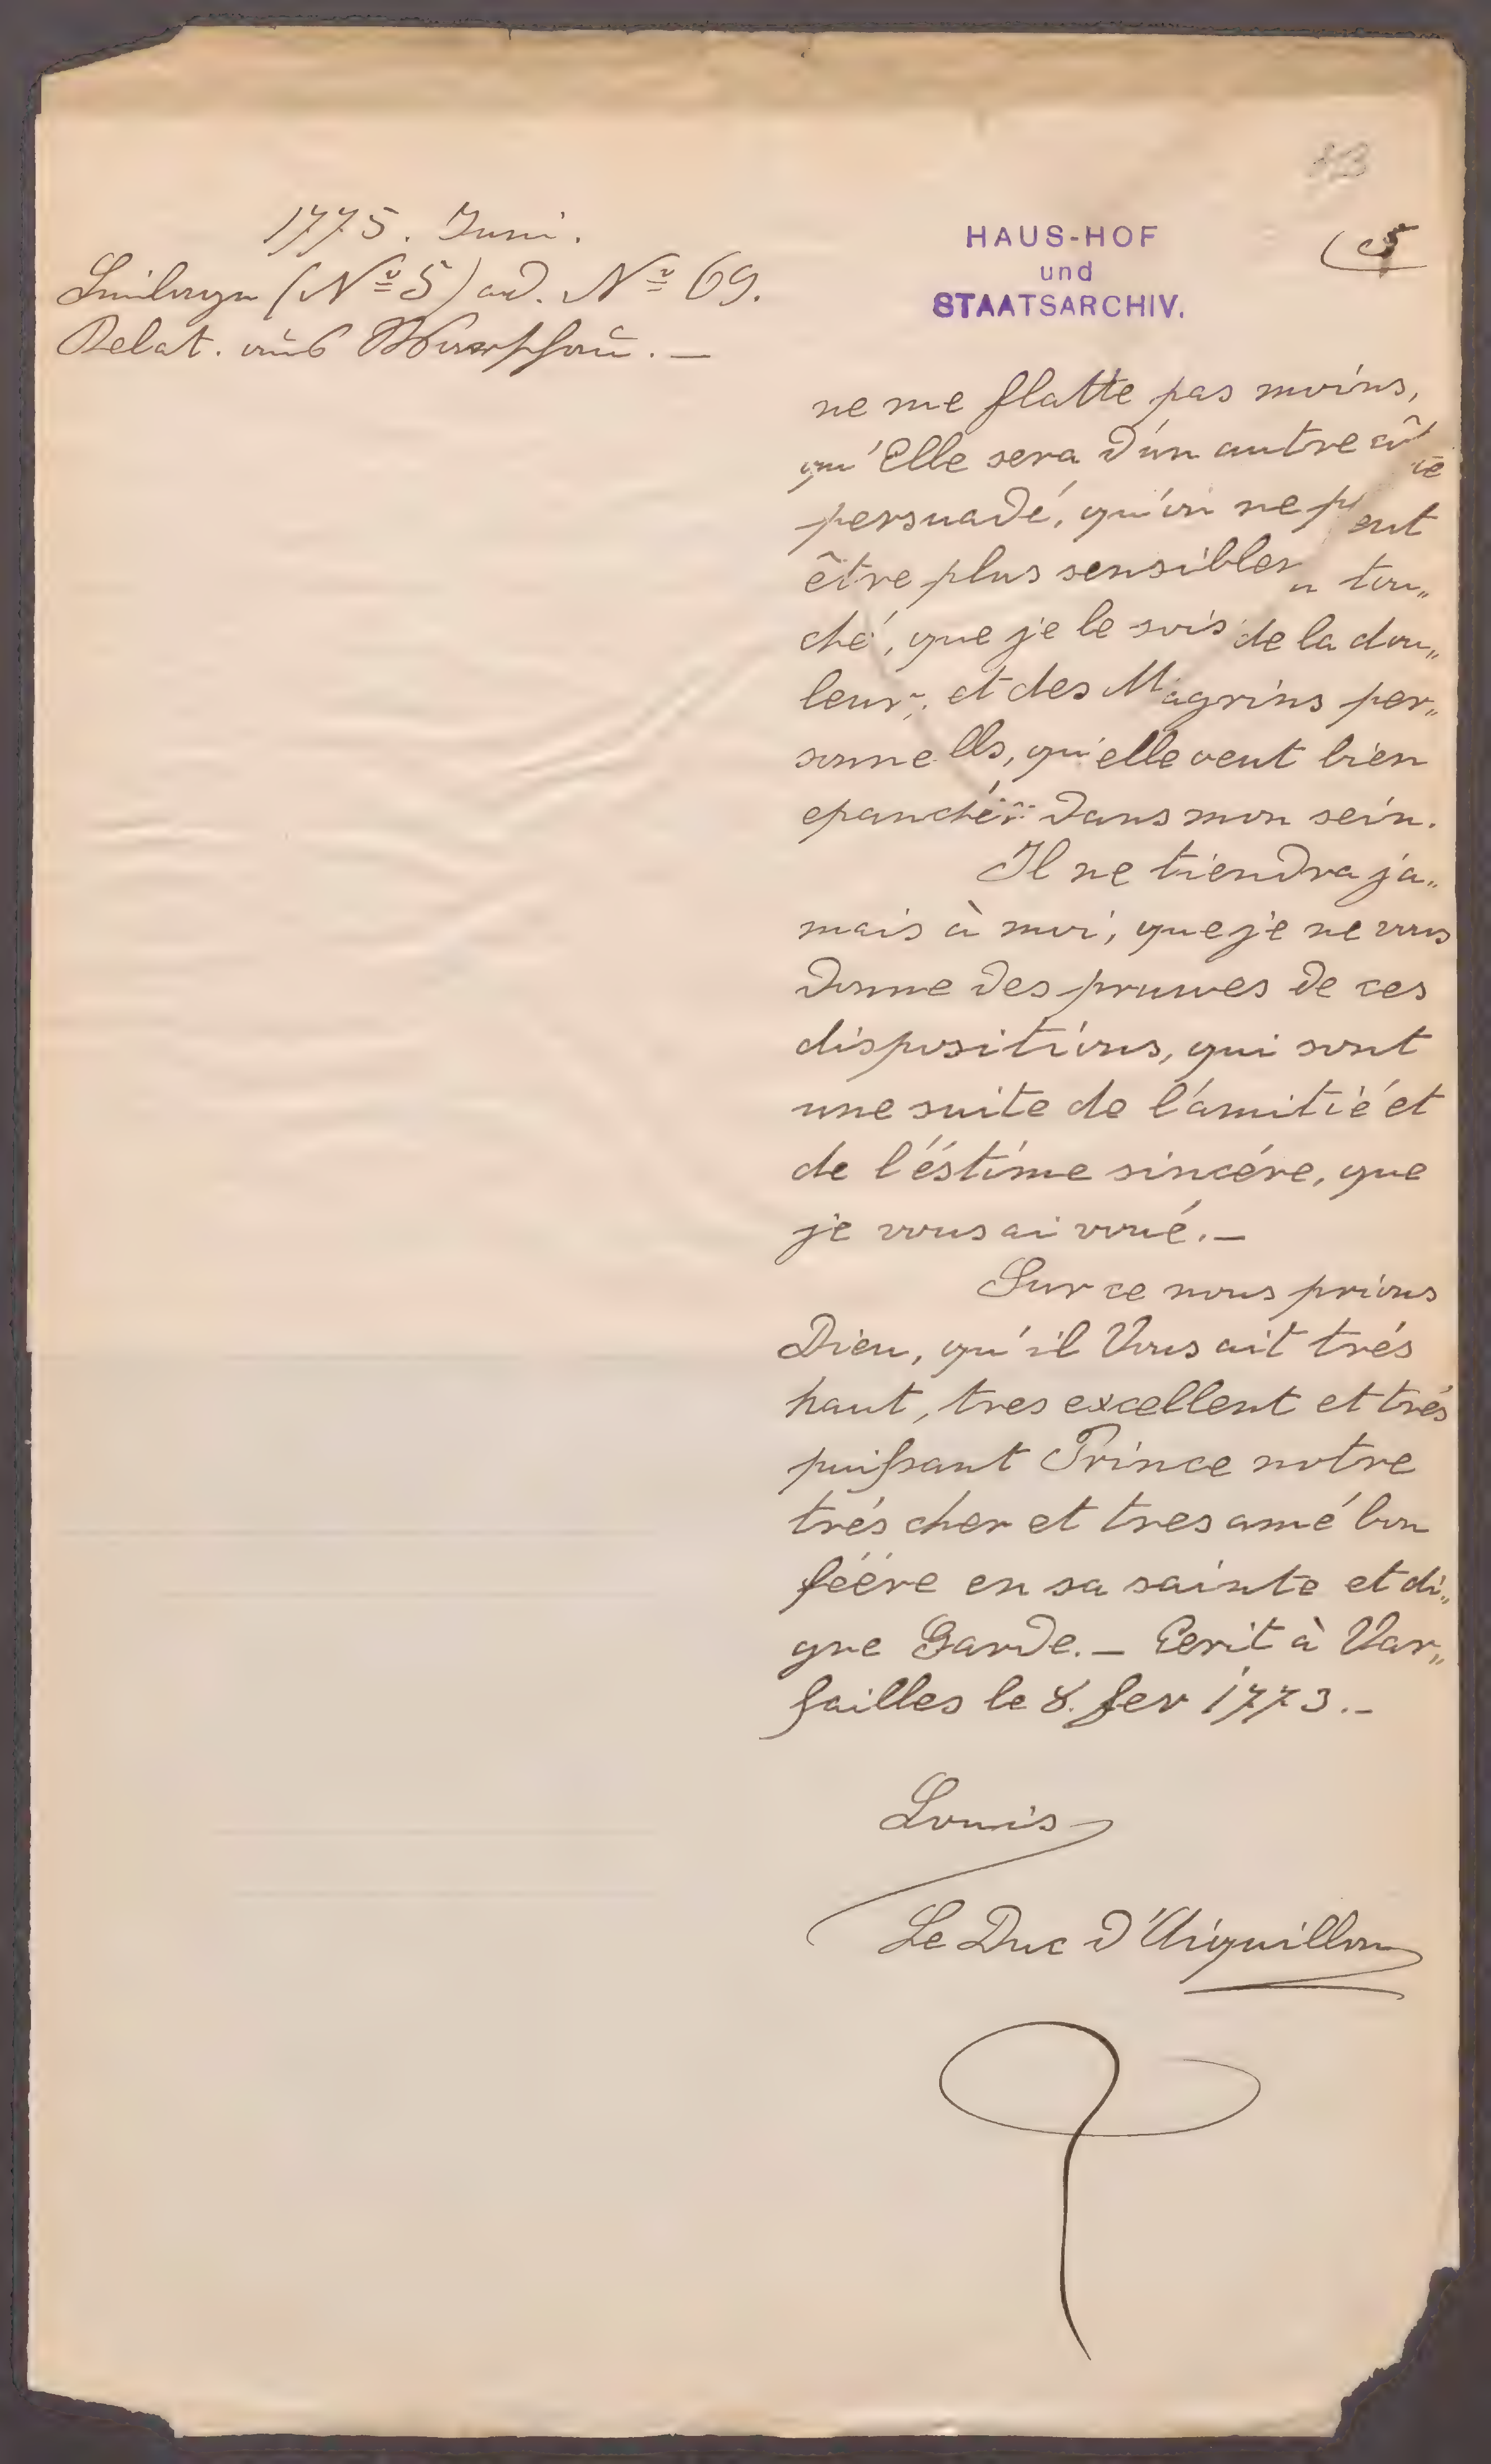 1775. Juni.
Beilage (No 5) ad. No 69.
Relat. aus Warschau. —
HAUS-HOF
und
STAATSARCHIV.
5
ne me flatte pas moins,
qu'Elle sera d'un autre côté
persuadé, qu'on ne peut
être plus sensiblem tou„
ché, que je le suis de la dou„
leur, et des chagrins per„
sonnells, qu'elle veut bien
epanchér dans mon sein.
Il ne tiendra ja„
mais à moi, que je ne vous
donne des pruuves de ces
dispositions, qui sont
une suite de l'amitié et
de l'éstime sincére, que
je vous ai voué. —
Sur ce nous prions
Dieu, qu'il Vous ait trés
haut, tres excellent et trés
puissant Prince notre
trés cher et tres amé bon
féére en sa sainte et di„
gne Garde. — Ecrit à Var„
sailles le 8. fev 1773. —
Louis
Le Duc d'Aiguillon